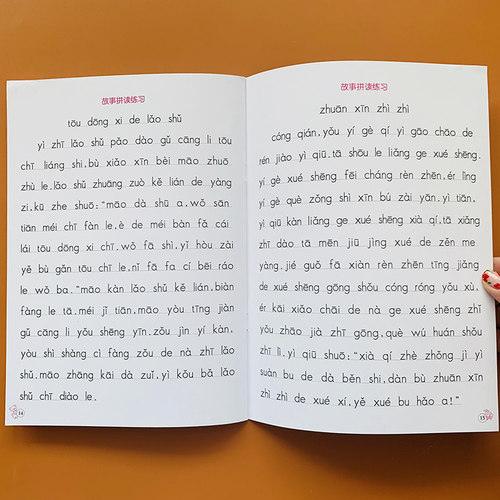 故事拼读练习
tōu dōng xi de lǎo shǔ
yì zhī lǎo shǔ pǎo dào gǔ cāng li tōu
chī liáng shi,bù xiǎo xīn bèi māo zhuō
zhù le.lǎo shǔ zhuāng zuò kě lián de yàng
zi,kū zhe shuō:"māo dà shū a,wǒ sān
tiān méi chī fàn le,è de méi bàn fǎ cái
lái tōu dōng xi chī,wǒ fā shì,yǐ hòu zài
yě bù gǎn tōu chī le,nǐ fā fa cí bēi ráo
le wǒ ba."māo kàn lǎo shǔ kě lián,biàn
fàng le tā.méi jǐ tiān,māo yòu tīng jiàn
gǔ cāng li yǒu shēng yīn,zǒu jìn yí kàn,
yòu shì shàng cì fàng zǒu de nà zhī lǎo
shǔ.māo zhāng kāi dà zuǐ,yì kǒu bǎ lǎo
shǔ chī diào le.
14
故事拼读练习
zhuān xīn zhì zhì
cóng qián,yǒu yí gè qí yì gāo chāo de
rén jiào yì qiū.tā shōu le liǎng ge xué shēng.
yí gè xué shēng fēi cháng rèn zhēn,ér lìng
yí gè què zǒng shì xīn bú zài yān.yì tiān,
yì qiū kàn liǎng ge xué shēng xià qí,tā xiǎng
zhī dào tā mēn jiū jìng xué de zěn me
yàng.jié guǒ fā xiàn rèn zhēn tīng jiǎng
de xué shēng gōng shǒu cóng róng yǒu xù,
ér kāi xiǎo chāi de nà ge xué shēng zhǐ
yǒu zhāo jià zhī gōng,què wú huán shǒu
zhī lì.yì qiū shuō:"xià qí zhè zhǒng jì yì
suàn bu de dà běn shi,dàn bù zhuān xīn
zhì zhì de xué xí,yě xué bu hǎo a!"
15